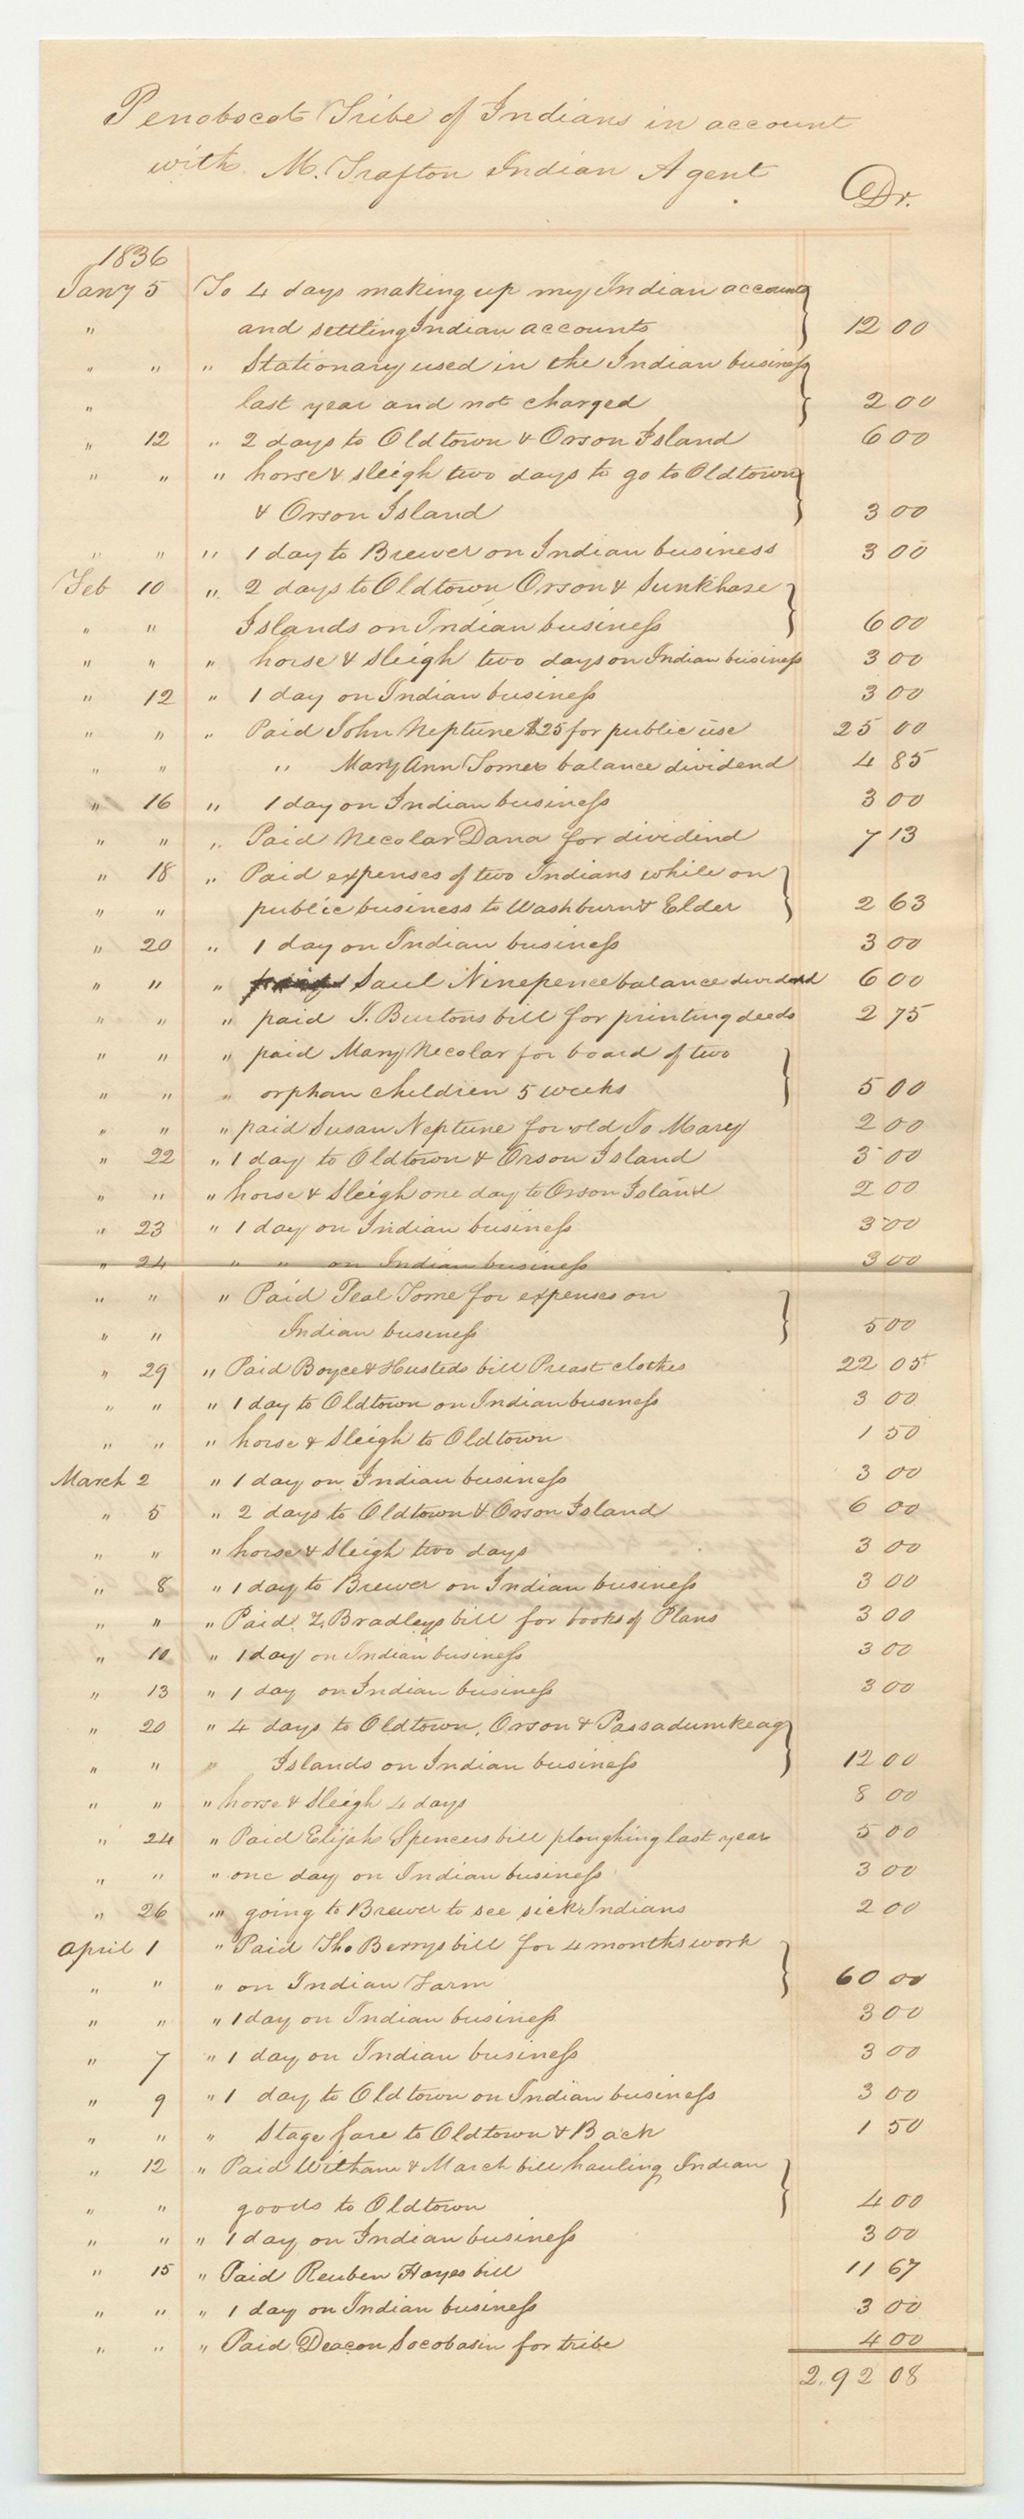 Penobscot Tribe of Indians in account
with M. Trafton Indian Agent Dr.
1836
Jany 5 To 4 days making up my Indian accounts
" and settling Indian accounts 12 00
" " " Stationary used in the Indian business
" last year and not charged 2 00
" 12 " 2 days to Oldtown & Orson Island 6 00
" " " horse & sleigh two days to go to Oldtown
& Orson Island 3 00
" " " 1 day to Brewer on Indian business 3 00
Feb 10 " 2 days to Oldtown Orson & Sunkhaze
" " Islands on Indian business 6 00
" " " horse & sleigh two days on Indian business 3 00
" 12 " 1 day on Indian business 3 00
" " " Paid John Neptune $25 for public use 25 00
" " " Mary Ann Tomer balance dividend 4 85
" 16 " 1 day on Indian business 3 00
" " " Paid Necolar Dana for dividend 7 13
" 18 " Paid expenses of two Indians while on
" " public business to Washburn & Elder 2 63
" 20 " 1 day on Indian business 3 00
" " " Saul Ninepence balance dividend 6 00
" " " paid J. Burtons bill for printing deeds 2 75
" " " paid Mary Necolar for board of two
" " " orphan children 5 weeks 5 00
" " " paid Susan Neptune for old To Mary 2 00
" 22 " 1 day to Oldtown & Orson Island 3 00
" " " horse & sleigh one day to Orson Island 2 00
" 23 " 1 day on Indian business 3 00
" 24 " " on Indian business 3 00
" " " Paid Peal Tome for expenses on
" " Indian business 5 00
" 29 " Paid Boyce & Husteds bill Preast clothes 22 05
" " " 1 day to Oldtown on Indian business 3 00
" " " horse & sleigh to Oldtown 1 50
March 2 " 1 day on Indian business 3 00
" 5 " 2 days to Oldtown & Orson Island 6 00
" " " horse & sleigh two days 3 00
" 8 " 1 day to Brewer on Indian business 3 00
" " " Paid Z. Bradleys bill for books of Plans 3 00
" 10 " 1 day on Indian business 3 00
" 13 " 1 day on Indian business 3 00
" 20 " 4 days to Oldtown, Orson & Passadumkeag
" " " Islands on Indian business 12 00
" " " horse & sleigh 4 days 8 00
" 24 " Paid Elijah Spencers bill ploughing last year 5 00
" " " one day on Indian business 3 00
" 26 " going to Brewer to see sick Indians 2 00
April 1 " Paid Tho Berrys bill for 4 months work
" " " on Indian Farm 60 00
" " " 1 day on Indian business 3 00
" 7 " 1 day on Indian business 3 00
" 9 " 1 day to Oldtown on Indian business 3 00
" " " Stage fare to Oldtown & Back 1 50
" 12 " Paid Witham & March bill hauling Indian
" " goods to Oldtown 4 00
" " " 1 day on Indian business 3 00
" 15 " Paid Reuben Hayes bill 11 67
" " " 1 day on Indian business 3 00
" " " Paid Deacon Socobasin for tribe 4 00
2.92 08